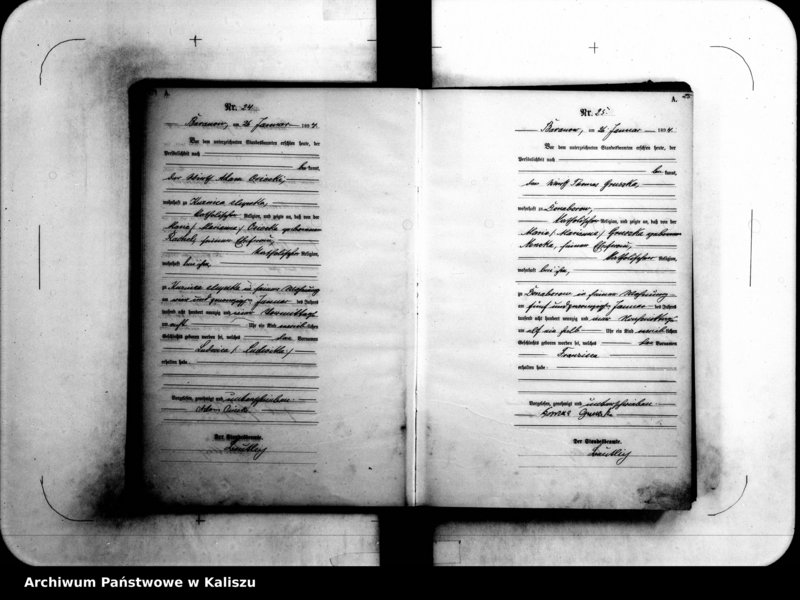 A.
Nr. 24
Baranow, am 26 Januar 1894
Vor dem unterzeichneten Standesbeamten erschien heute, der
Persönlichkeit nach
be kannt,
der Wirth Adam
wohnhaft zu Kuznica
katholischer Religion, und zeigte an, daß von der
Maria / Marianna / geborenen
seiner Ehefrau,
katholischer Religion,
wohnhaft bei ihm,
zu Kuznica in seiner Wohnung
am ein und zwanzigsten Januar des Jahres
tausend acht hundert neunzig und vier Vormittags
um acht Uhr ein Kind weiblichen
Geschlechts geboren worden sei, welches den Vornamen
Ludovica / Ludwika /
erhalten habe.
Vorgelesen, genehmigt und unterschrieben
Adam
Der Standesbeamte.
A.
25
Nr. 25
Baranow, am 26 Januar 1894
Vor dem unterzeichneten Standesbeamten erschien heute, der
Persönlichkeit nach
be kannt,
der Wirth Thomas Gruszka,
wohnhaft zu Donaborow,
katholischer Religion, und zeigte an, daß von der
Maria / Marianna / Gruszka geborenen
seiner Ehefrau,
katholischer Religion,
wohnhaft bei ihm,
zu Donaborow in seiner Wohnung
am fünf und zwanzigsten Januar des Jahres
tausend acht hundert neunzig und vier Nachmittags
um elf ein halb Uhr ein Kind weiblichen
Geschlechts geboren worden sei, welches den Vornamen
Franzisca
erhalten habe.
Vorgelesen, genehmigt und unterschrieben
Gruszka
Der Standesbeamte.
Archiwum Państwowe w Kaliszu